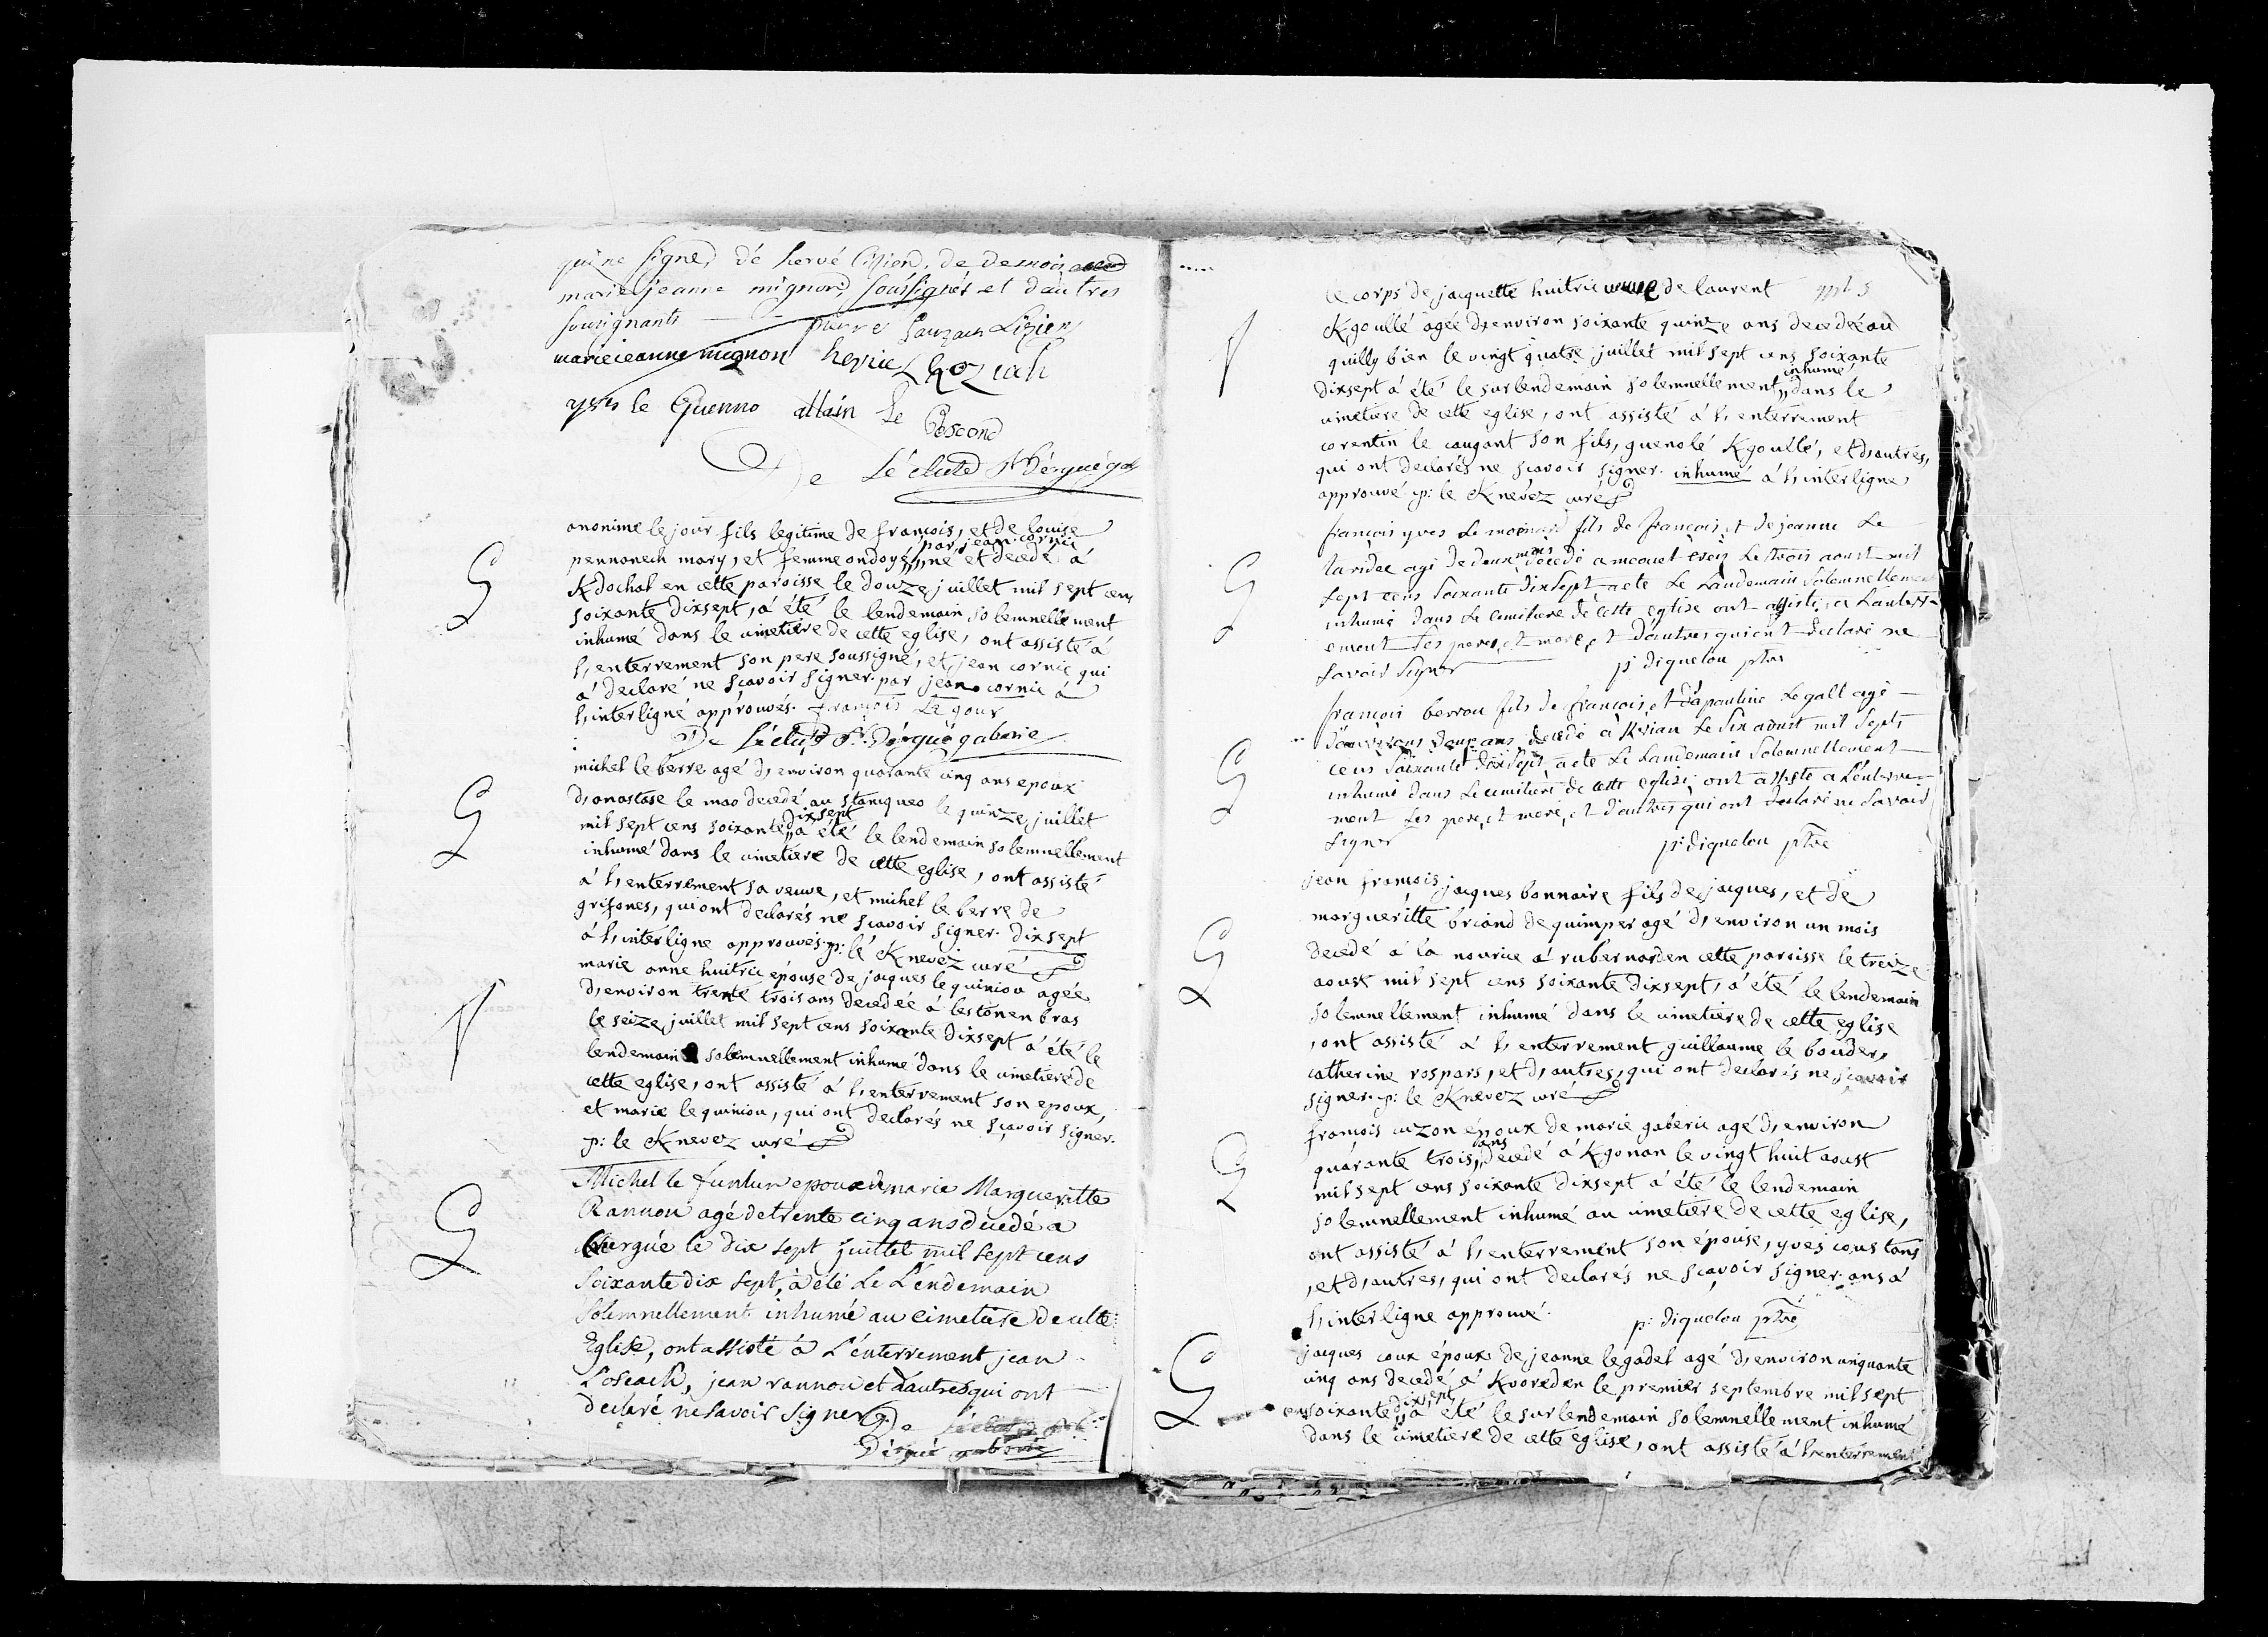 qui ne signe, de hervé Lizien, de demois
marie jeanne mignon, soussignés et d'autres
sousignants pierre Lauzach Lizien
marie jeanne mignon hervie Lhoziach
yves le Guenno allain Le Poscond
De Lécluse St dérgué gab
anonime le jour fils legitime de françois, et de louise
pennanech mary, et femme ondoyé,, par jean cornic né et decedé à
Kdochal en cette paroisse le douze juillet mil sept cens
soixante dixsept, à été le lendemain solemnellement
inhumé dans le cimetiére de cette eglise, ont assisté à
l, enterrement son pere soussigné, et jean cornic qui
a declaré ne sçavoir signer. par jean cornic à
l, interligne approuvés. françois Le gour
De Lécluse St. Dérgué gaberie
michel le berre agé d, environ quarante cinq ans epoux
d, anastase le mao decedé au stanqueo le quinze juillet
mil sept cens soixante,, dixsept à été le lendemain solemnellement
inhumé dans le cimetiére de cette eglise, ont assisté
à l, enterrement sa veuve, et michel le berre de
grifones, qui ont declarés ne sçavoir signer. dixsept
à l, interligne approuvés. p: le Knevez curé
marie anne huitric épouse de jacques le quiniou agée
d, environ trente trois ans decedée à lestonen bras
le seize juillet mil sept cens soixante dixsept à été le
lendemain solemnellement inhumé dans le cimetiére de
cette eglise, ont assisté à l, enterrement son epoux,
et marie le quiniou, qui ont declarés ne sçavoir signer.
p: le Knevez curé
Michel le funtun epoux de marie Margueritte
Rannou agé de trente cinq ans decedé a
le dix sept juillet mil sept cens
soixante dix sept, à été Le Lendemain
solemnellement inhumé au cimetiére de cette
Eglise, ont assisté à L'enterrement jean
Loseach, jean rannou et d'autres qui ont
declaré ne savoir signer De
Dérgué gaberie
le corps de jacquette huitric veuve de laurent
Kgoullé agée d, environ soixante quinze ans decedée au
quilly bien le vingt quatre juillet mil sept cens soixante
dixsept à été le surlendemain solemnellement,, inhumé dans le
cimetiere de cette eglise, ont assisté à l, enterrement
corentin le caugant son fils, guenolé Kgoullé, et d, autres,
qui ont declarés ne sçavoir signer. inhumé à l, interligne
approuvé p: le Knevez curé
françois yves Le moënard fils de françois, et de jeanne Le
laridec agé de deux mois decedé a meouet vroez Le trois aoust mil
sept cens soixante dix sept a ete Le Landemain solemnellement
inhumé dans Le cimitiere de cette eglise ont assisté, a Lanterr
ement ses peres, et mere, et d'autres qui ont declaré ne
savoir signer p: diquelou ptre
françois berrou fils de françois, et de pauline Le gall agé
d'environs deux ans decedé a Krian Le six aoust mil sept
cens soixante dix sept a ete Le Landemain solemnellement
inhumé dans Le cimitiere de cette eglise, ont assiste a L'enterre
ment ses pere, et mere, et d'autres qui ont declaré ne savoir
signer p: diquelou ptre
jean françois jacques bonnaire fils de jacques, et de
margueritte briand de quimper agé d, environ un mois
decedé à la nourice à rubernard en cette paroisse le treize
aoust mil sept cens soixante dixsept, à été le lendemain
solemnellement inhumé dans le cimetiére de cette eglise
, ont assisté à l, enterrement guillaume le bouder,
catherine rospars, et d, autres, qui ont declarés ne sçavoir
signer. p: le Knevez curé
françois cuzon époux de marie gaberic agé d, environ
quarante trois,, ans decedé à Kgonan le vingt huit aoust
mil sept cens soixante dixsept à été le lendemain
solemnellement inhumé au cimetiere de cette eglise,
ont assisté à l, enterrement son épouse, yves coustans
, et d, autres, qui ont declarés ne sçavoir signer. ans à
l, interligne approuvé. p: diquelou ptre
jacques coux époux de jeanne le gadel agé d, environ cinquante
cinq ans decedé à Kvoreden le premier septembre mil sept
cens soixante,, dixsept à été le surlendemain solemnellement inhumé
dans le cimetiere de cette eglise, ont assisté à l, enterrement